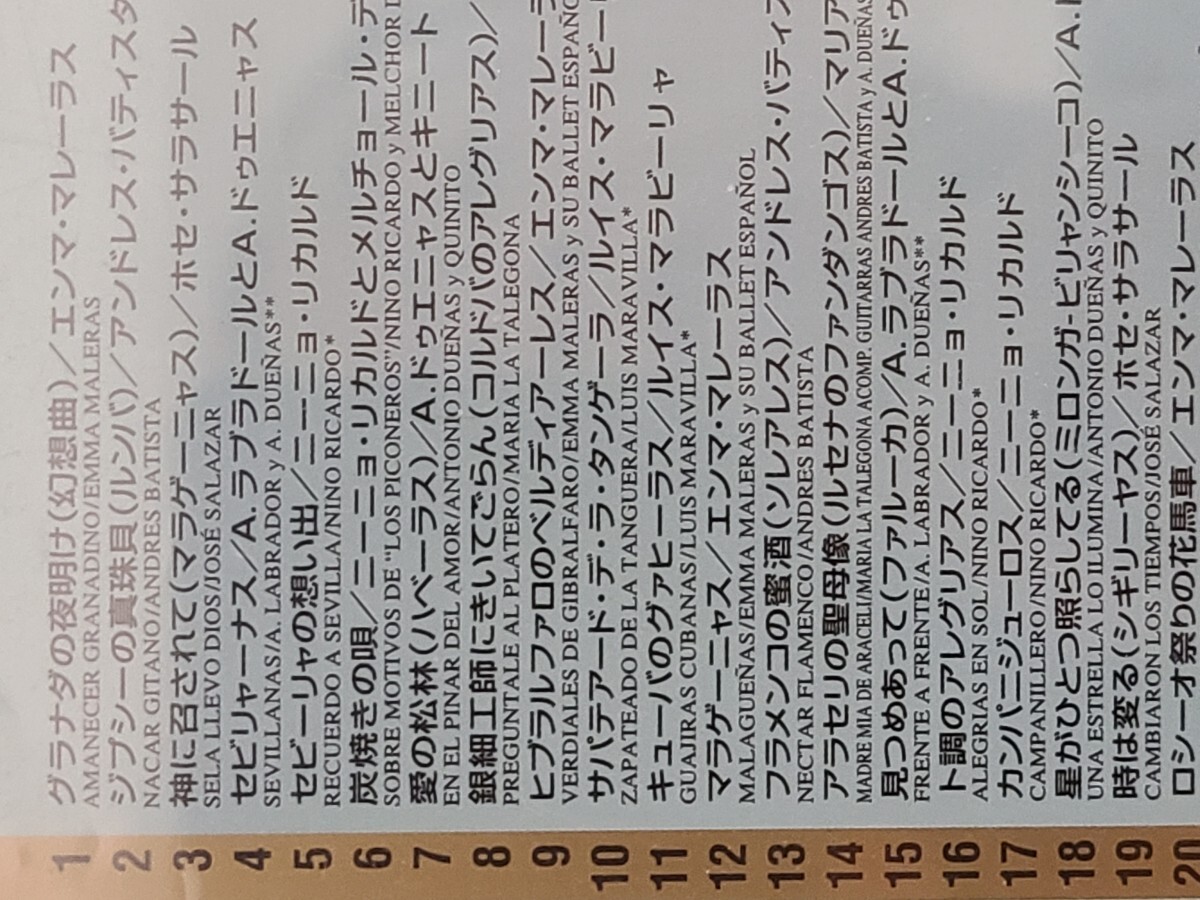 1 グラナダの夜明け(幻想曲)／エンマ・マレーラス
AMANECER GRANADINO/EMMA MALERAS
2 ジプシーの真珠貝(ルンバ)／アンドレス・バティスタ
NACAR GITANO/ANDRES BATISTA
3 神に召されて(マラゲーニャス)／ホセ・サラサール
SELA LLEVO DIOS/JOSÉ SALAZAR
4 セビリャーナス／A.ラブラドールとA.ドゥエニャス
SEVILLANAS/A. LABRADOR y A. DUEÑAS**
5 セビーリャの想い出／ニーニョ・リカルド
RECUERDO A SEVILLA/NINO RICARDO*
6 炭焼きの唄／ニーニョ・リカルドとメルチョール・デ
SOBRE MOTIVOS DE "LOS PICONEROS"/NINO RICARDO y MELCHOR
7 愛の松林(ハベーラス)／A.ドゥエニャスとキニート
EN EL PINAR DEL AMOR/ANTONIO DUEÑAS y QUINITO
8 銀細工師にきいてごらん(コルドバのアレグリアス)／
PREGUNTALE AL PLATERO/MARIA LA TALEGONA
9 ヒブラルファロのベルディアーレス／エンマ・マレーラ
VERDIALES DE GIBRALFARO/EMMA MALERAS y SU BALLET ESPAÑO
10 サパテアード・デ・ラ・タンゲーラ／ルイス・マラビー
ZAPATEADO DE LA TANGUERA/LUIS MARAVILLA*
11 キューバのグァヒーラス／ルイス・マラビーリャ
GUAJIRAS CUBANAS/LUIS MARAVILLA*
12 マラゲーニャス／エンマ・マレーラス
MALAGUEÑAS/EMMA MALERAS y SU BALLET ESPAÑOL
13 フラメンコの蜜酒(ソレアレス)／アンドレス・バティス
NECTAR FLAMENCO/ANDRES BATISTA
14 アラセリの聖母像(ルセナのファンダンゴス)／マリア
MADRE MIA DE ARACELI/MARIA LA TALEGONA ACOMP. GUITARRAS ANDRES BATISTA y A. DUEÑAS
15 見つめあって(ファルーカ)／A.ラブラドールとA.ドゥ
FRENTE A FRENTE/A. LABRADOR y A. DUEÑAS**
16 ト調のアレグリアス／ニーニョ・リカルド
ALEGRIAS EN SOL/NINO RICARDO*
17 カンパニジューロス／ニーニョ・リカルド
CAMPANILLERO/NINO RICARDO*
18 星がひとつ照らしてる(ミロンガ-ビリャンシーコ)／A.
UNA ESTRELLA LO ILUMINA/ANTONIO DUEÑAS y QUINITO
19 時は変る(シギリーヤス)／ホセ・サラサール
CAMBIARON LOS TIEMPOS/JOSÉ SALAZAR
20 ロシーオ祭りの花馬車／エンマ・マレーラス